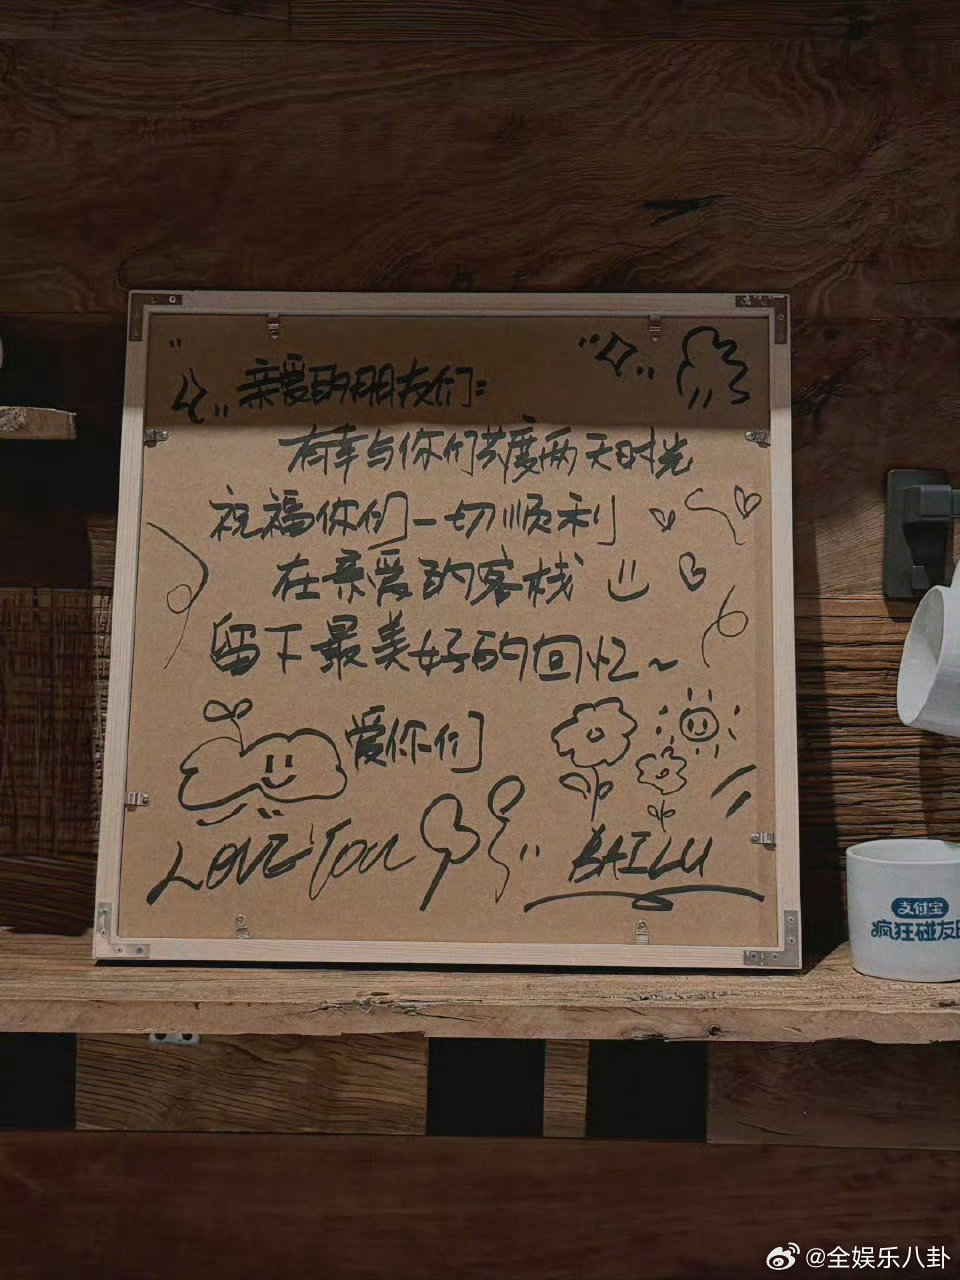 亲爱的朋友们:
有幸与你们共度两天时光
祝福你们一切顺利
在亲爱的客栈
留下最美好的回忆~
爱你们
LOVE You
BAILU
支付宝
疯狂碰友
@全娱乐八卦